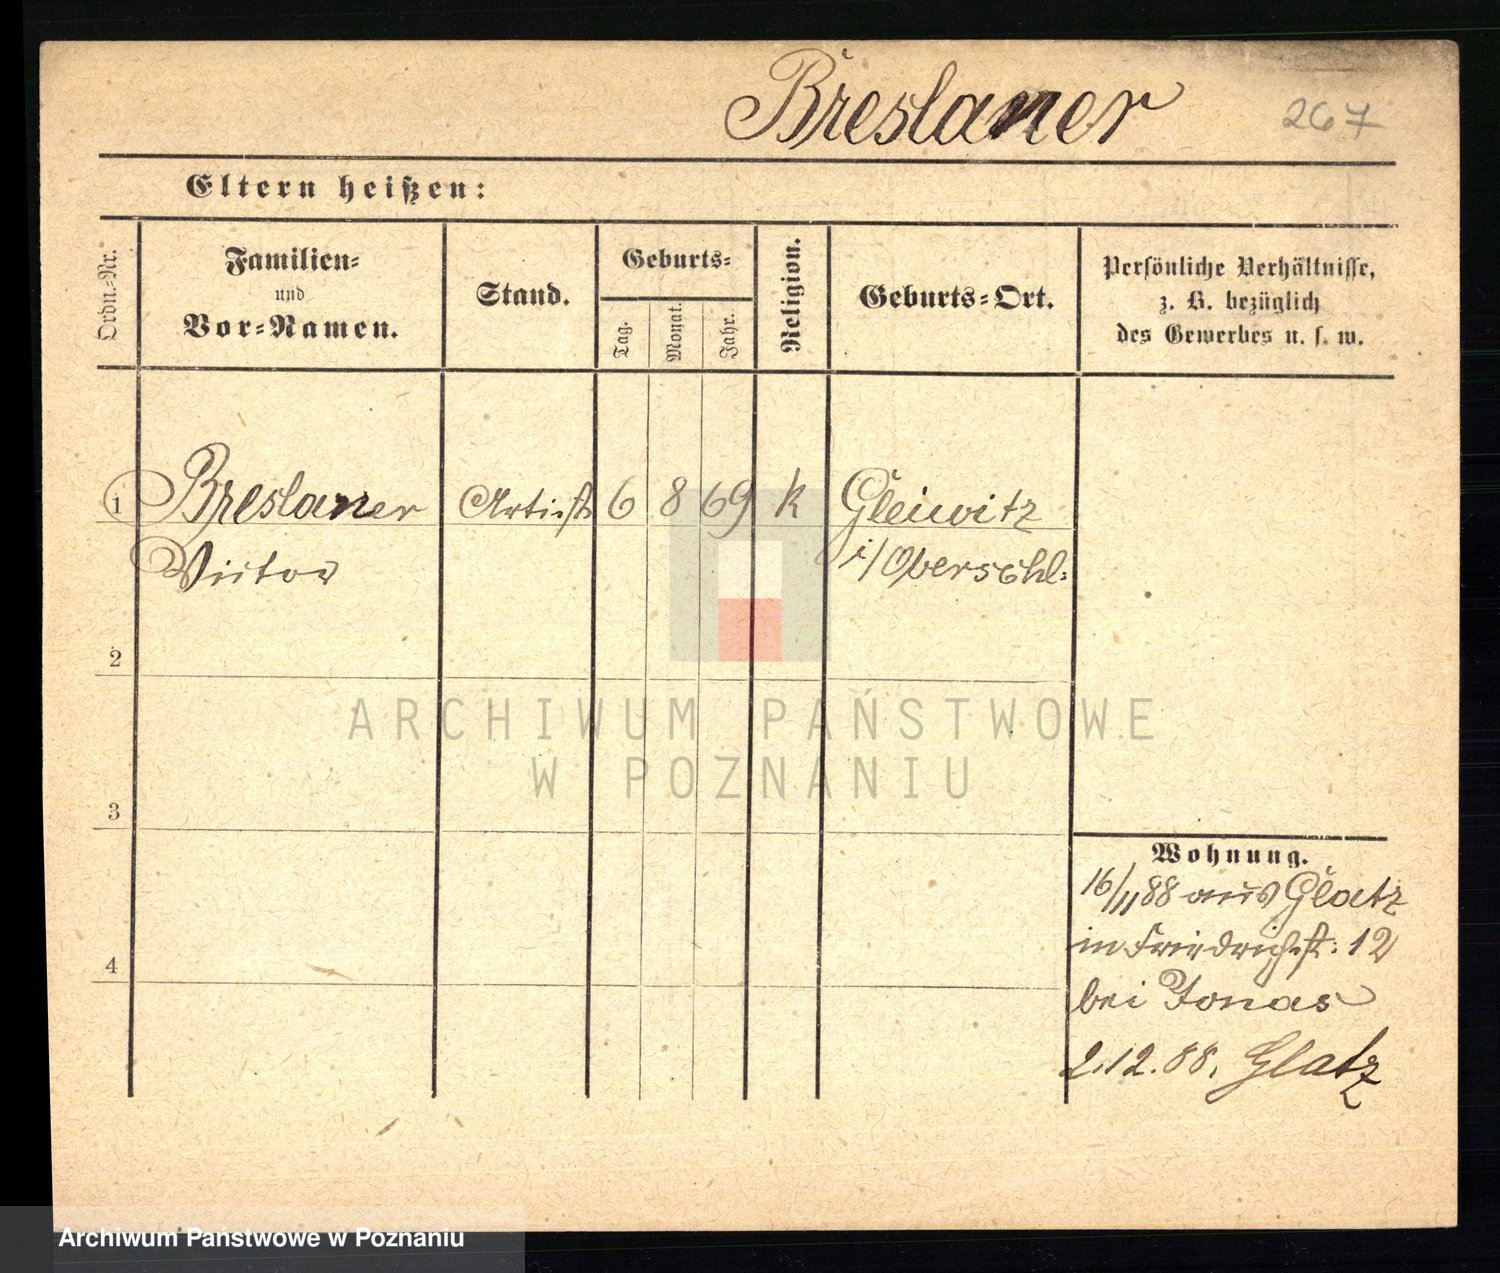 Breslaner 267
Eltern heißen:
Ordn.-Nr.
Familien-
und
Vor-Namen.
Stand.
Geburts-
Tag.
Monat.
Jahr.
Religion.
Geburts-Ort.
Persönliche Verhältnisse,
z. B. bezüglich
des Gewerbes u. s. w.
1 Breslaner Artist 6 8 69 k Gleiwitz
Victor i/Oberschl:
2
3
4
Wohnung.
16/11 88 aus Glatz
in Friedrichst: 12
bei Jonas
2.12.88. Glatz
ARCHIWUM PAŃSTWOWE
W POZNANIU
Archiwum Państwowe w Poznaniu